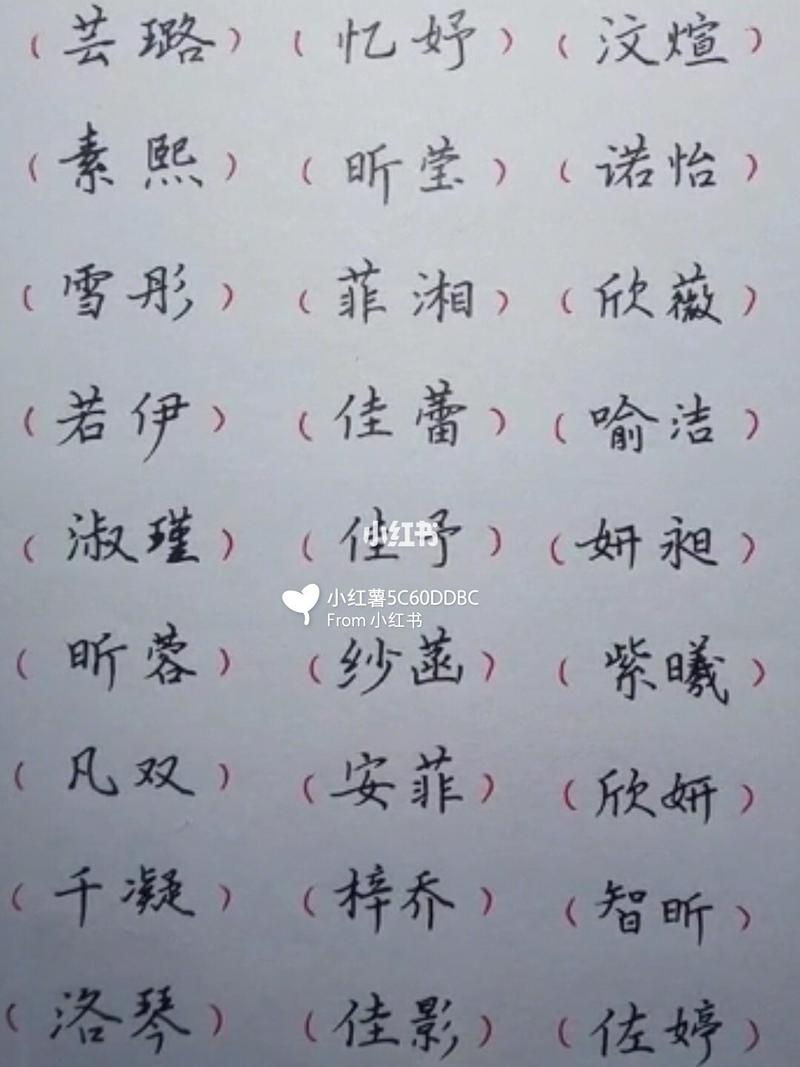 （芸璐）（忆妤）（汶煊）
（素熙）（昕莹）（诺怡）
（雪彤）（菲湘）（欣薇）
（若伊）（佳蕾）（喻洁）
（淑瑾）（佳予）（妍昶）
小红书
小红薯5C60DDBC
From 小红书
（昕蓉）（纱菡）（紫曦）
（凡双）（安菲）（欣妍）
（千凝）（梓乔）（智昕）
（洛琴）（佳影）（佐婷）